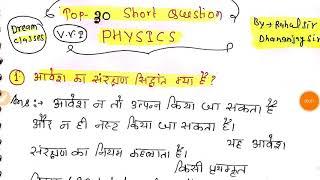 Top-30 Short Question
Dream classes
V.V.I
PHYSICS
By → Rahul sir
Dhananjay Sir
① आवेश का संरक्षण सिद्धांत क्या है?
Ans:- आवेश न तो उत्पन्न किया जा सकता है
और न ही नष्ट किया जा सकता है।
यह आवेश
संरक्षण का नियम कहलाता है।
किसी पृथक्कृत